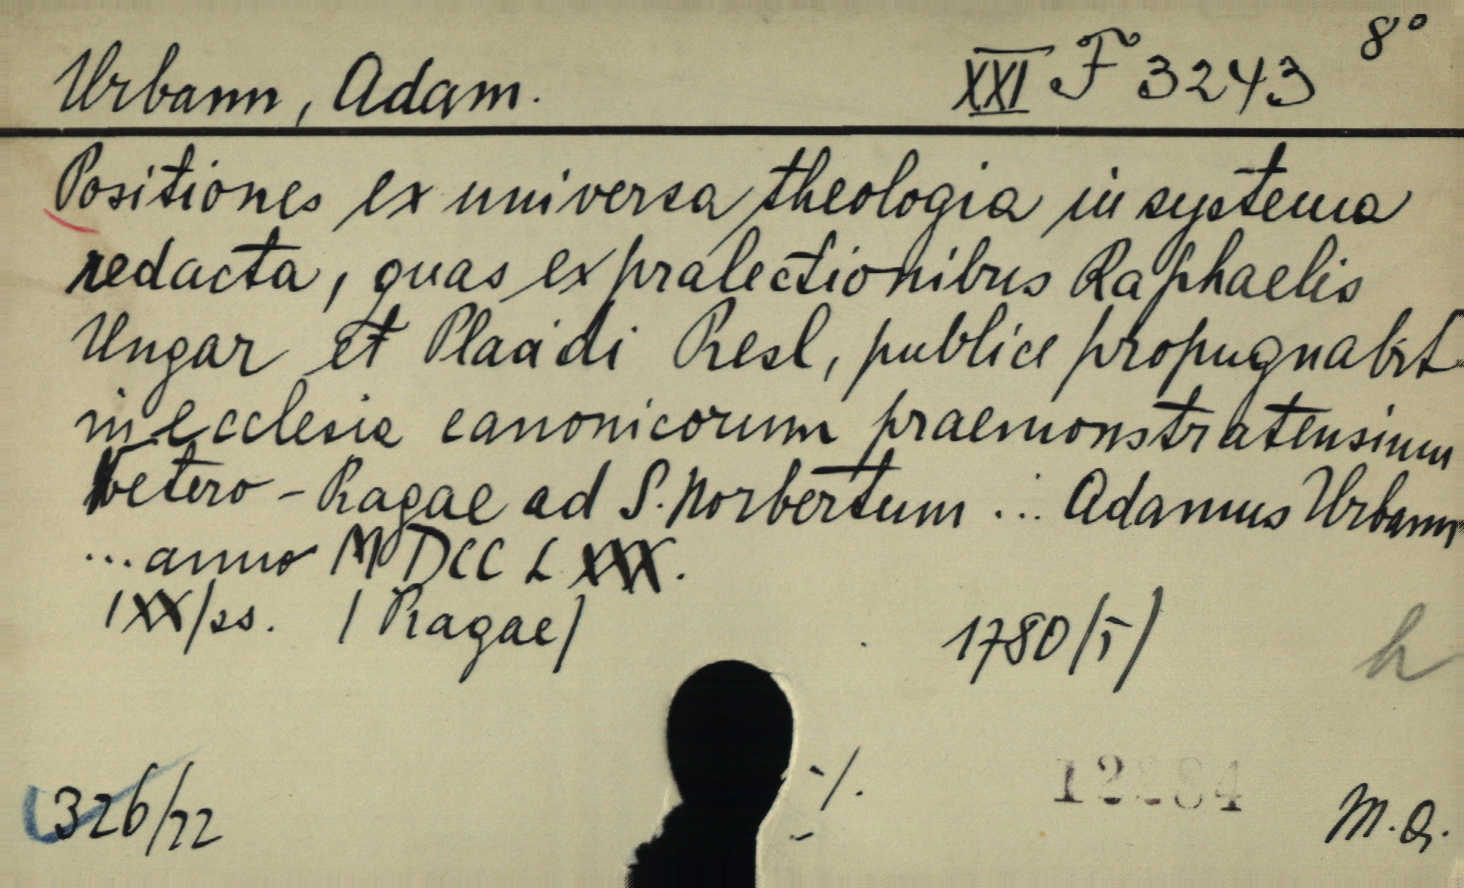 Urbann, Adam. XXI F 3243 8°
Positiones ex universa theologia in systema
redacta, quas ex pralectionibus Raphaelis
Ungar et Placidi Resl, publice propugnabit
in ecclesia canonicorum praemonstratensium
Vetero-Pragae ad S. Norbertum ... Adamus Urbann
... anno MDCCLXXX.
/Pragae/ 1780/I/
h
326/22 -/. 12284 M.Q.